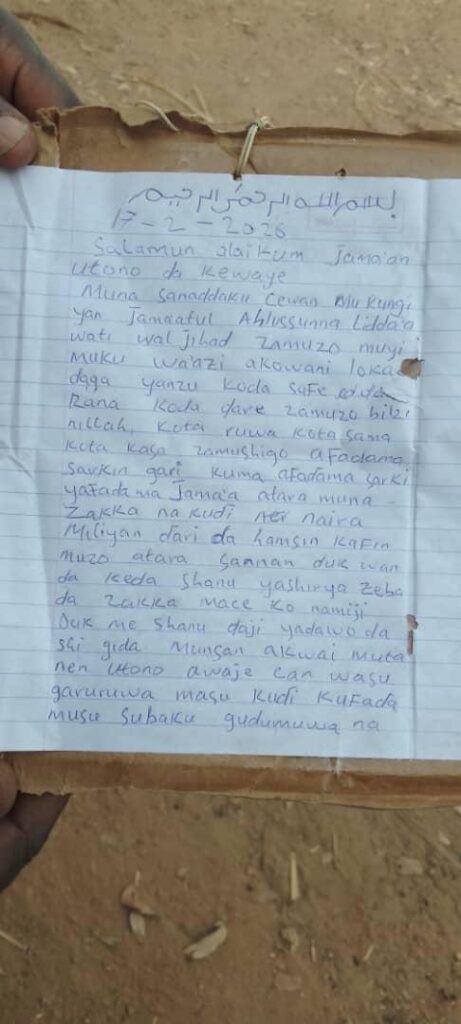 بسم الله الرحمن الرحيم
17-2-2026
Salamun alaikum Jama'an
Utono da kewaye
Muna sanaddaku cewan Mu kungi
yan Jamaatul Ahlussunna Lidda'a
wati wal Jihad zamuzo muyi
muku wa'azi akowani loka
daga yanzu koda safe
Rana koda dare zamuzo bizi
nillah, kota ruwa kota sama
kota kasa zamushigo afadama
Sarkin gari kuma afadama sarki
yafada ma Jama'a atara muna
Zakka na kudi naira
Miliyan dari da hamsin kafin
muzo atara sannan duk wan
da keda shanu yashirya zeba
da zakka mace ko namiji
Duk me shanu daji yadawo da
shi gida munsan akwai muta
nen Utono awaje can wasu
garuruwa masu kudi kufada
musu subaku gudumuwa na